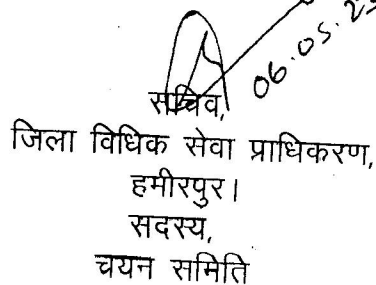 06.05.23
सचिव,
जिला विधिक सेवा प्राधिकरण,
हमीरपुर।
सदस्य,
चयन समिति